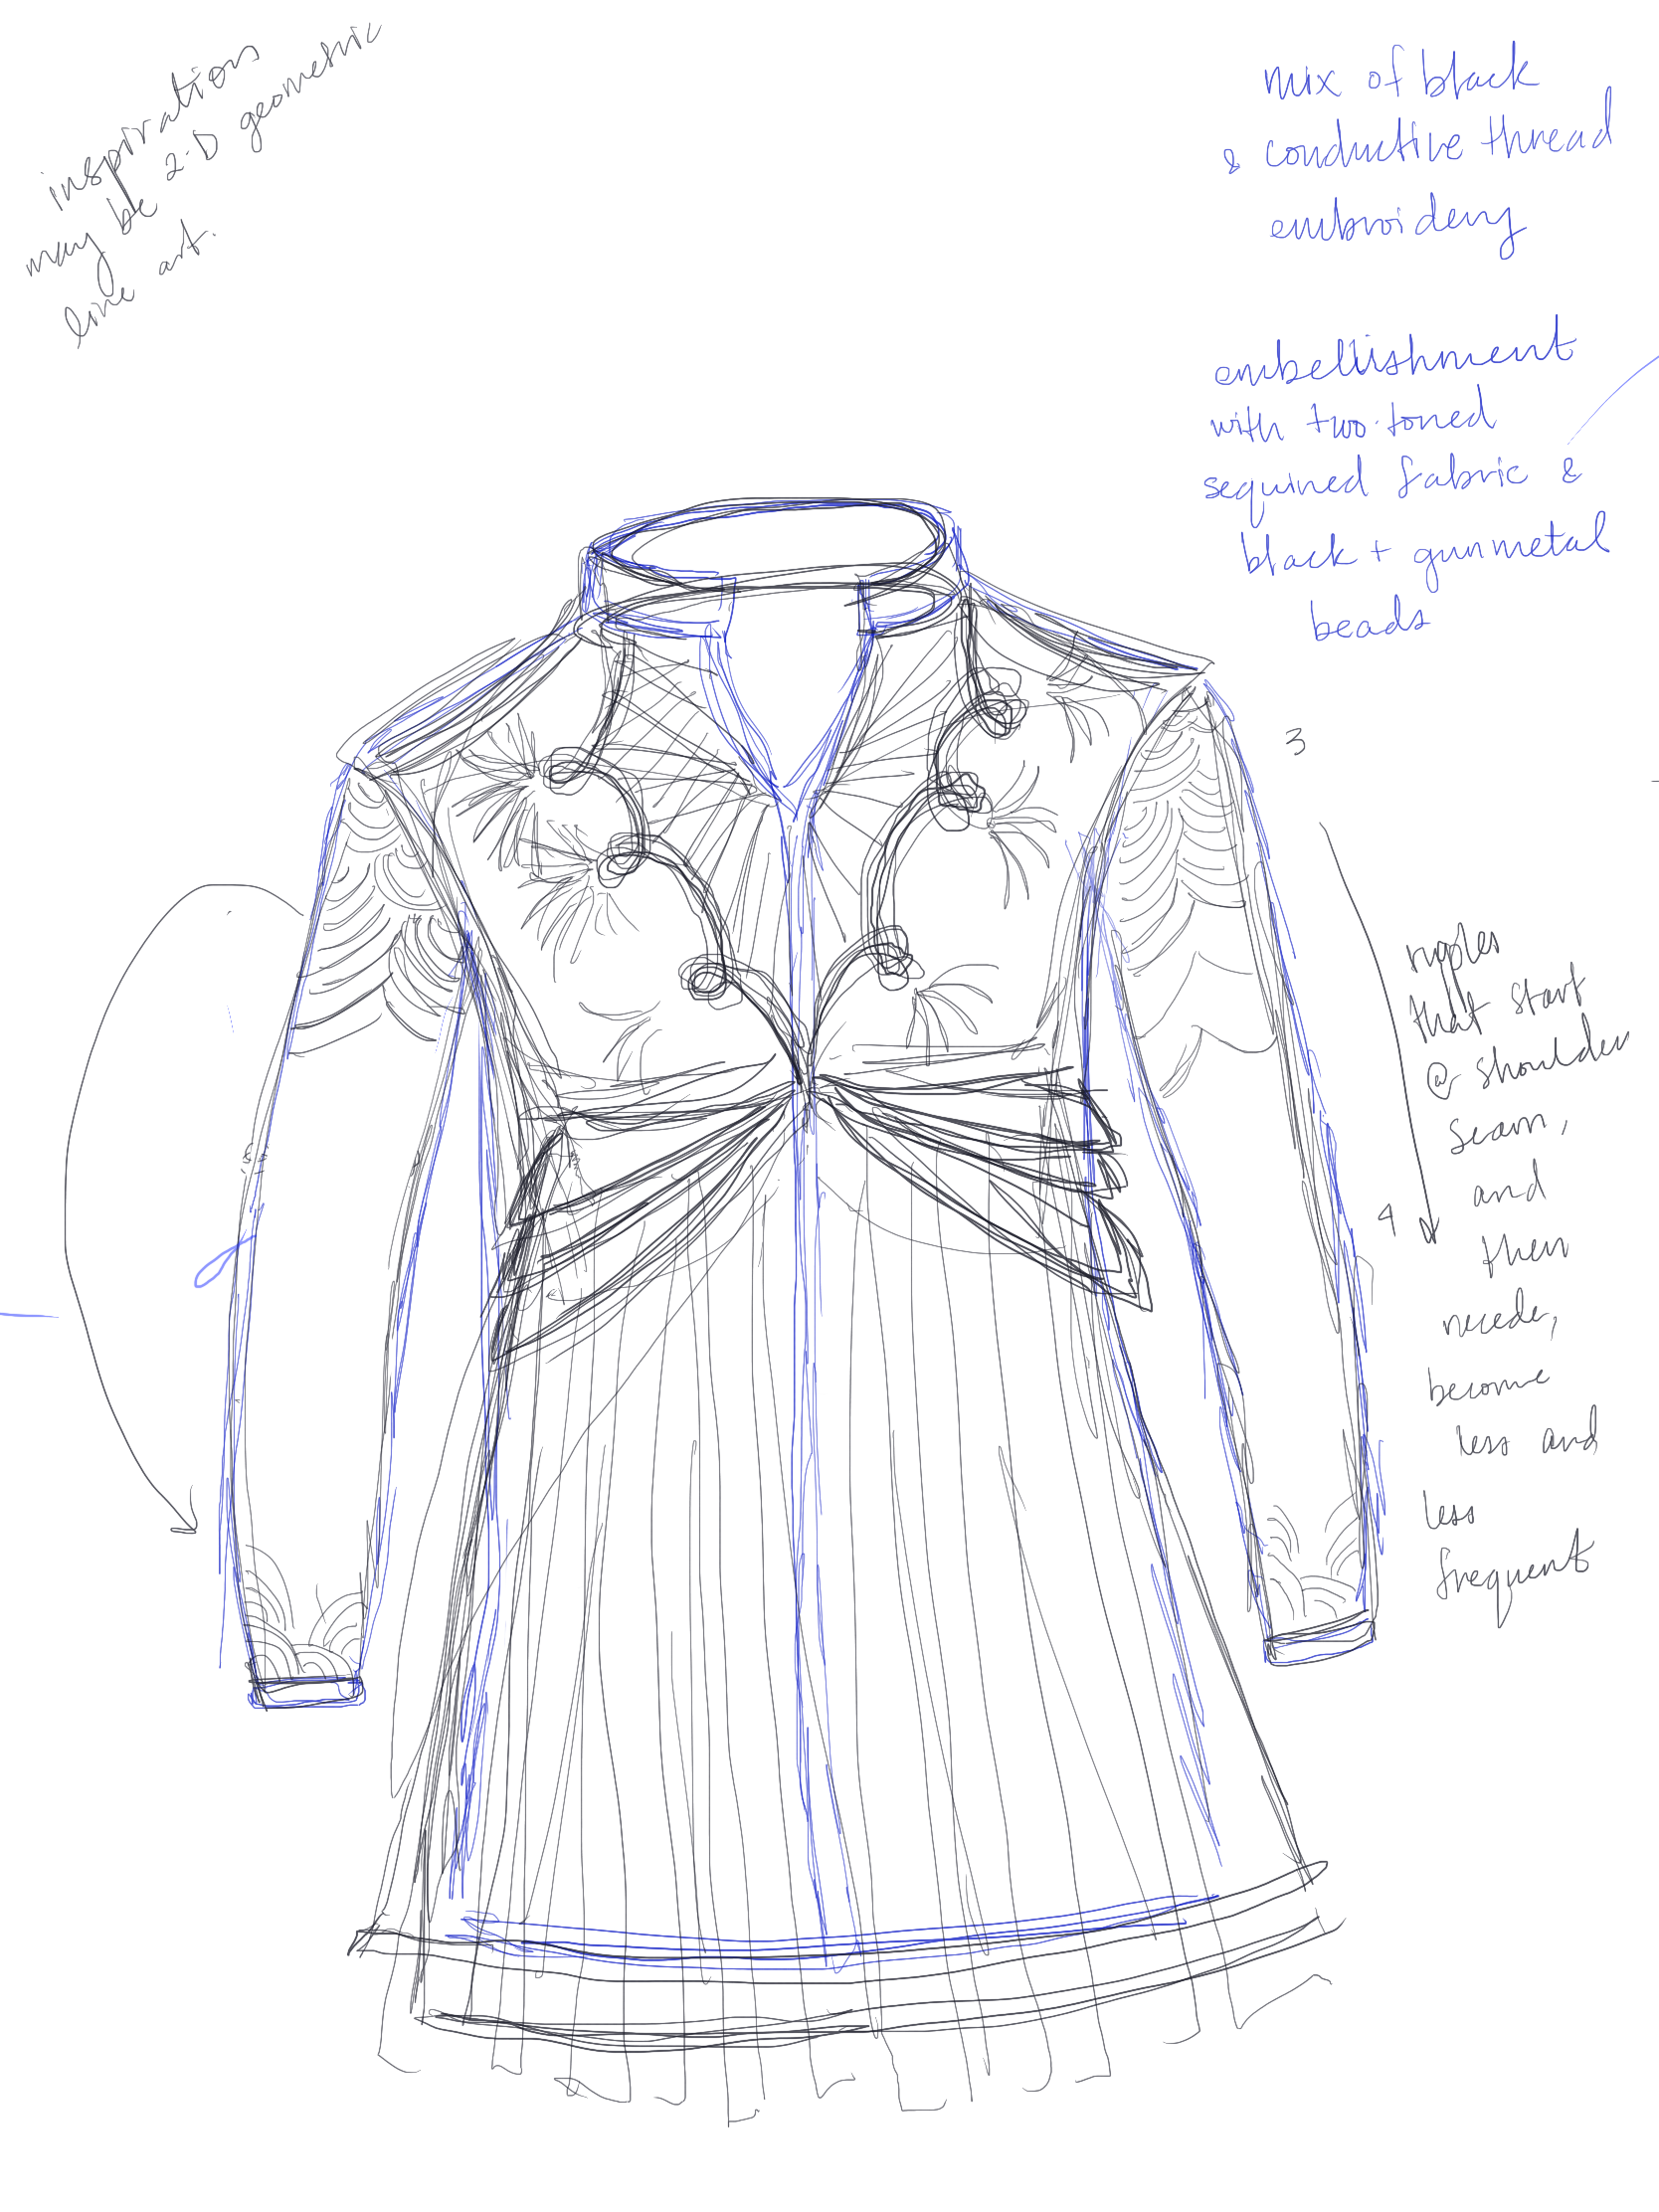 inspirations
may be 2-D geometric
line art.
mix of black
& conductive thread
embroidery
embellishment
with two-toned
sequined fabric &
black + gunmetal
beads
3
ripples
that start
@ shoulder
seam,
and
4
then
recede,
become
less and
less
frequent